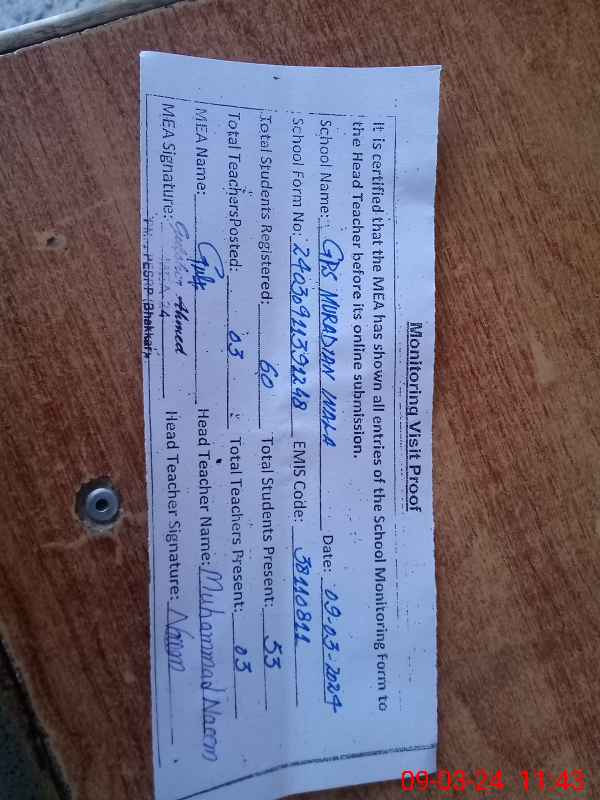 Monitoring Visit Proof
It is certified that the MEA has shown all entries of the School Monitoring Form to
the Head Teacher before its online submission.
School Name: GPS MURADIAN WALA Date: 09-03-2024
School Form No: 24030911391248 EMIS Code: 38110811
Total Students Registered: 60 Total Students Present: 53
Total TeachersPosted: 03 Total Teachers Present: 03
MEA Name: Head Teacher Name: Muhammad Naeem
MEA Signature: Ahmed Head Teacher Signature: Naeem
PESRP (Bhakkar)
09-03-24 11:43